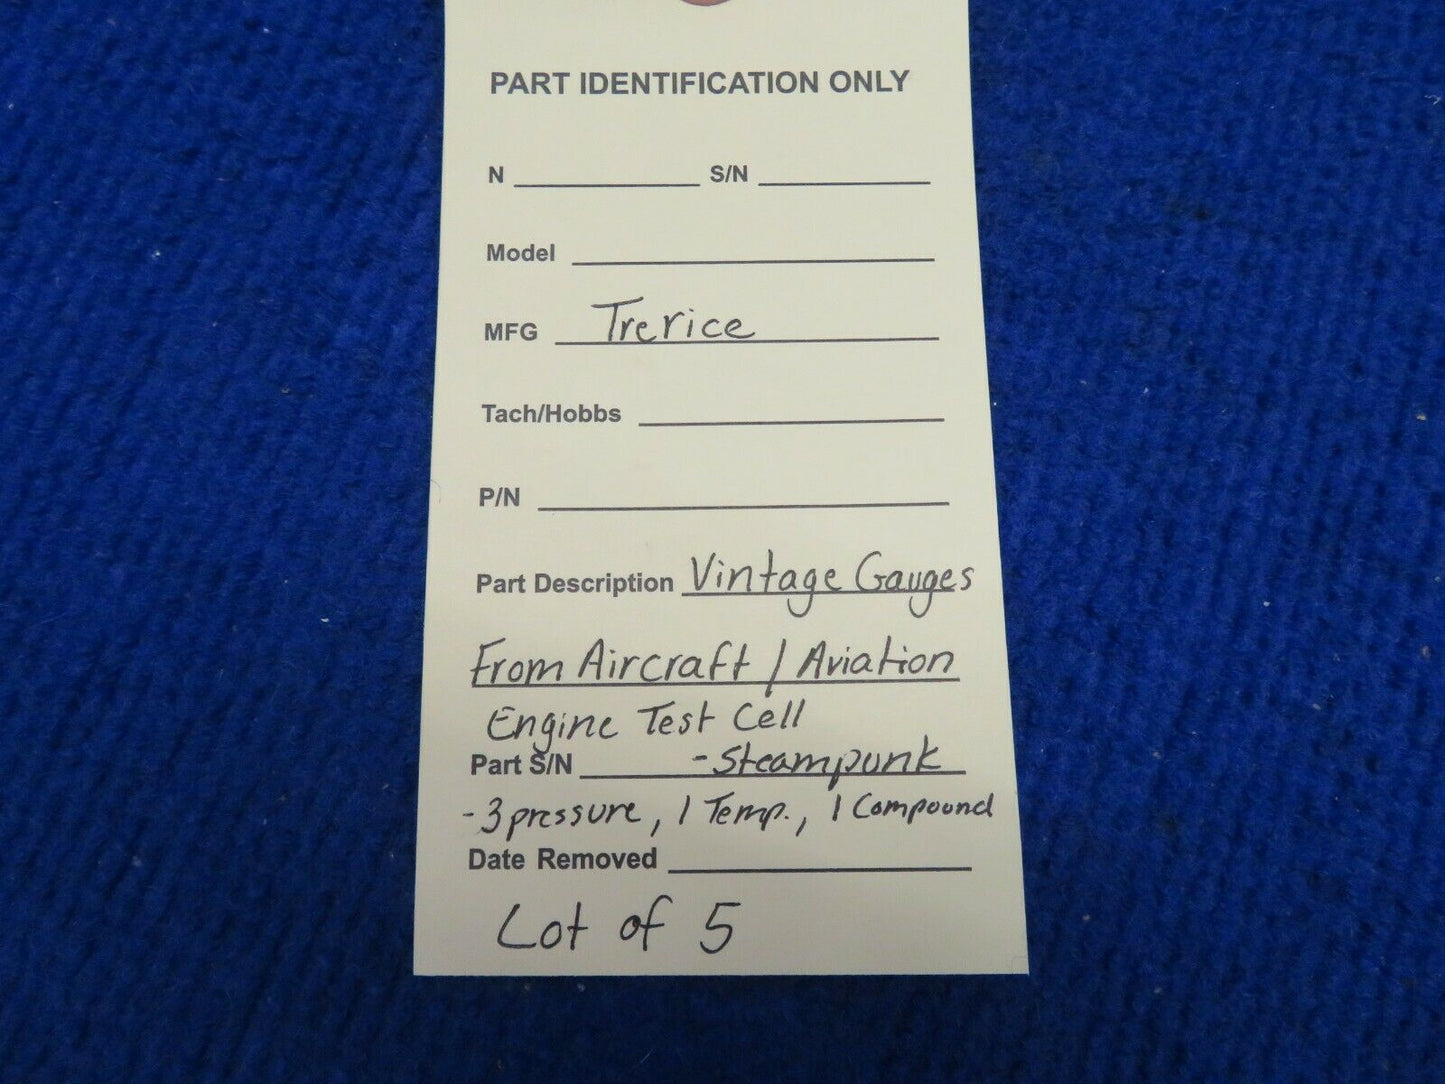 PART IDENTIFICATION ONLY
N S/N
Model
MFG Trerice
Tach/Hobbs
P/N
Part Description Vintage Gauges
From Aircraft / Aviation
Engine Test Cell
Part S/N -Steampunk
-3 pressure, 1 Temp., 1 Compound
Date Removed
Lot of 5